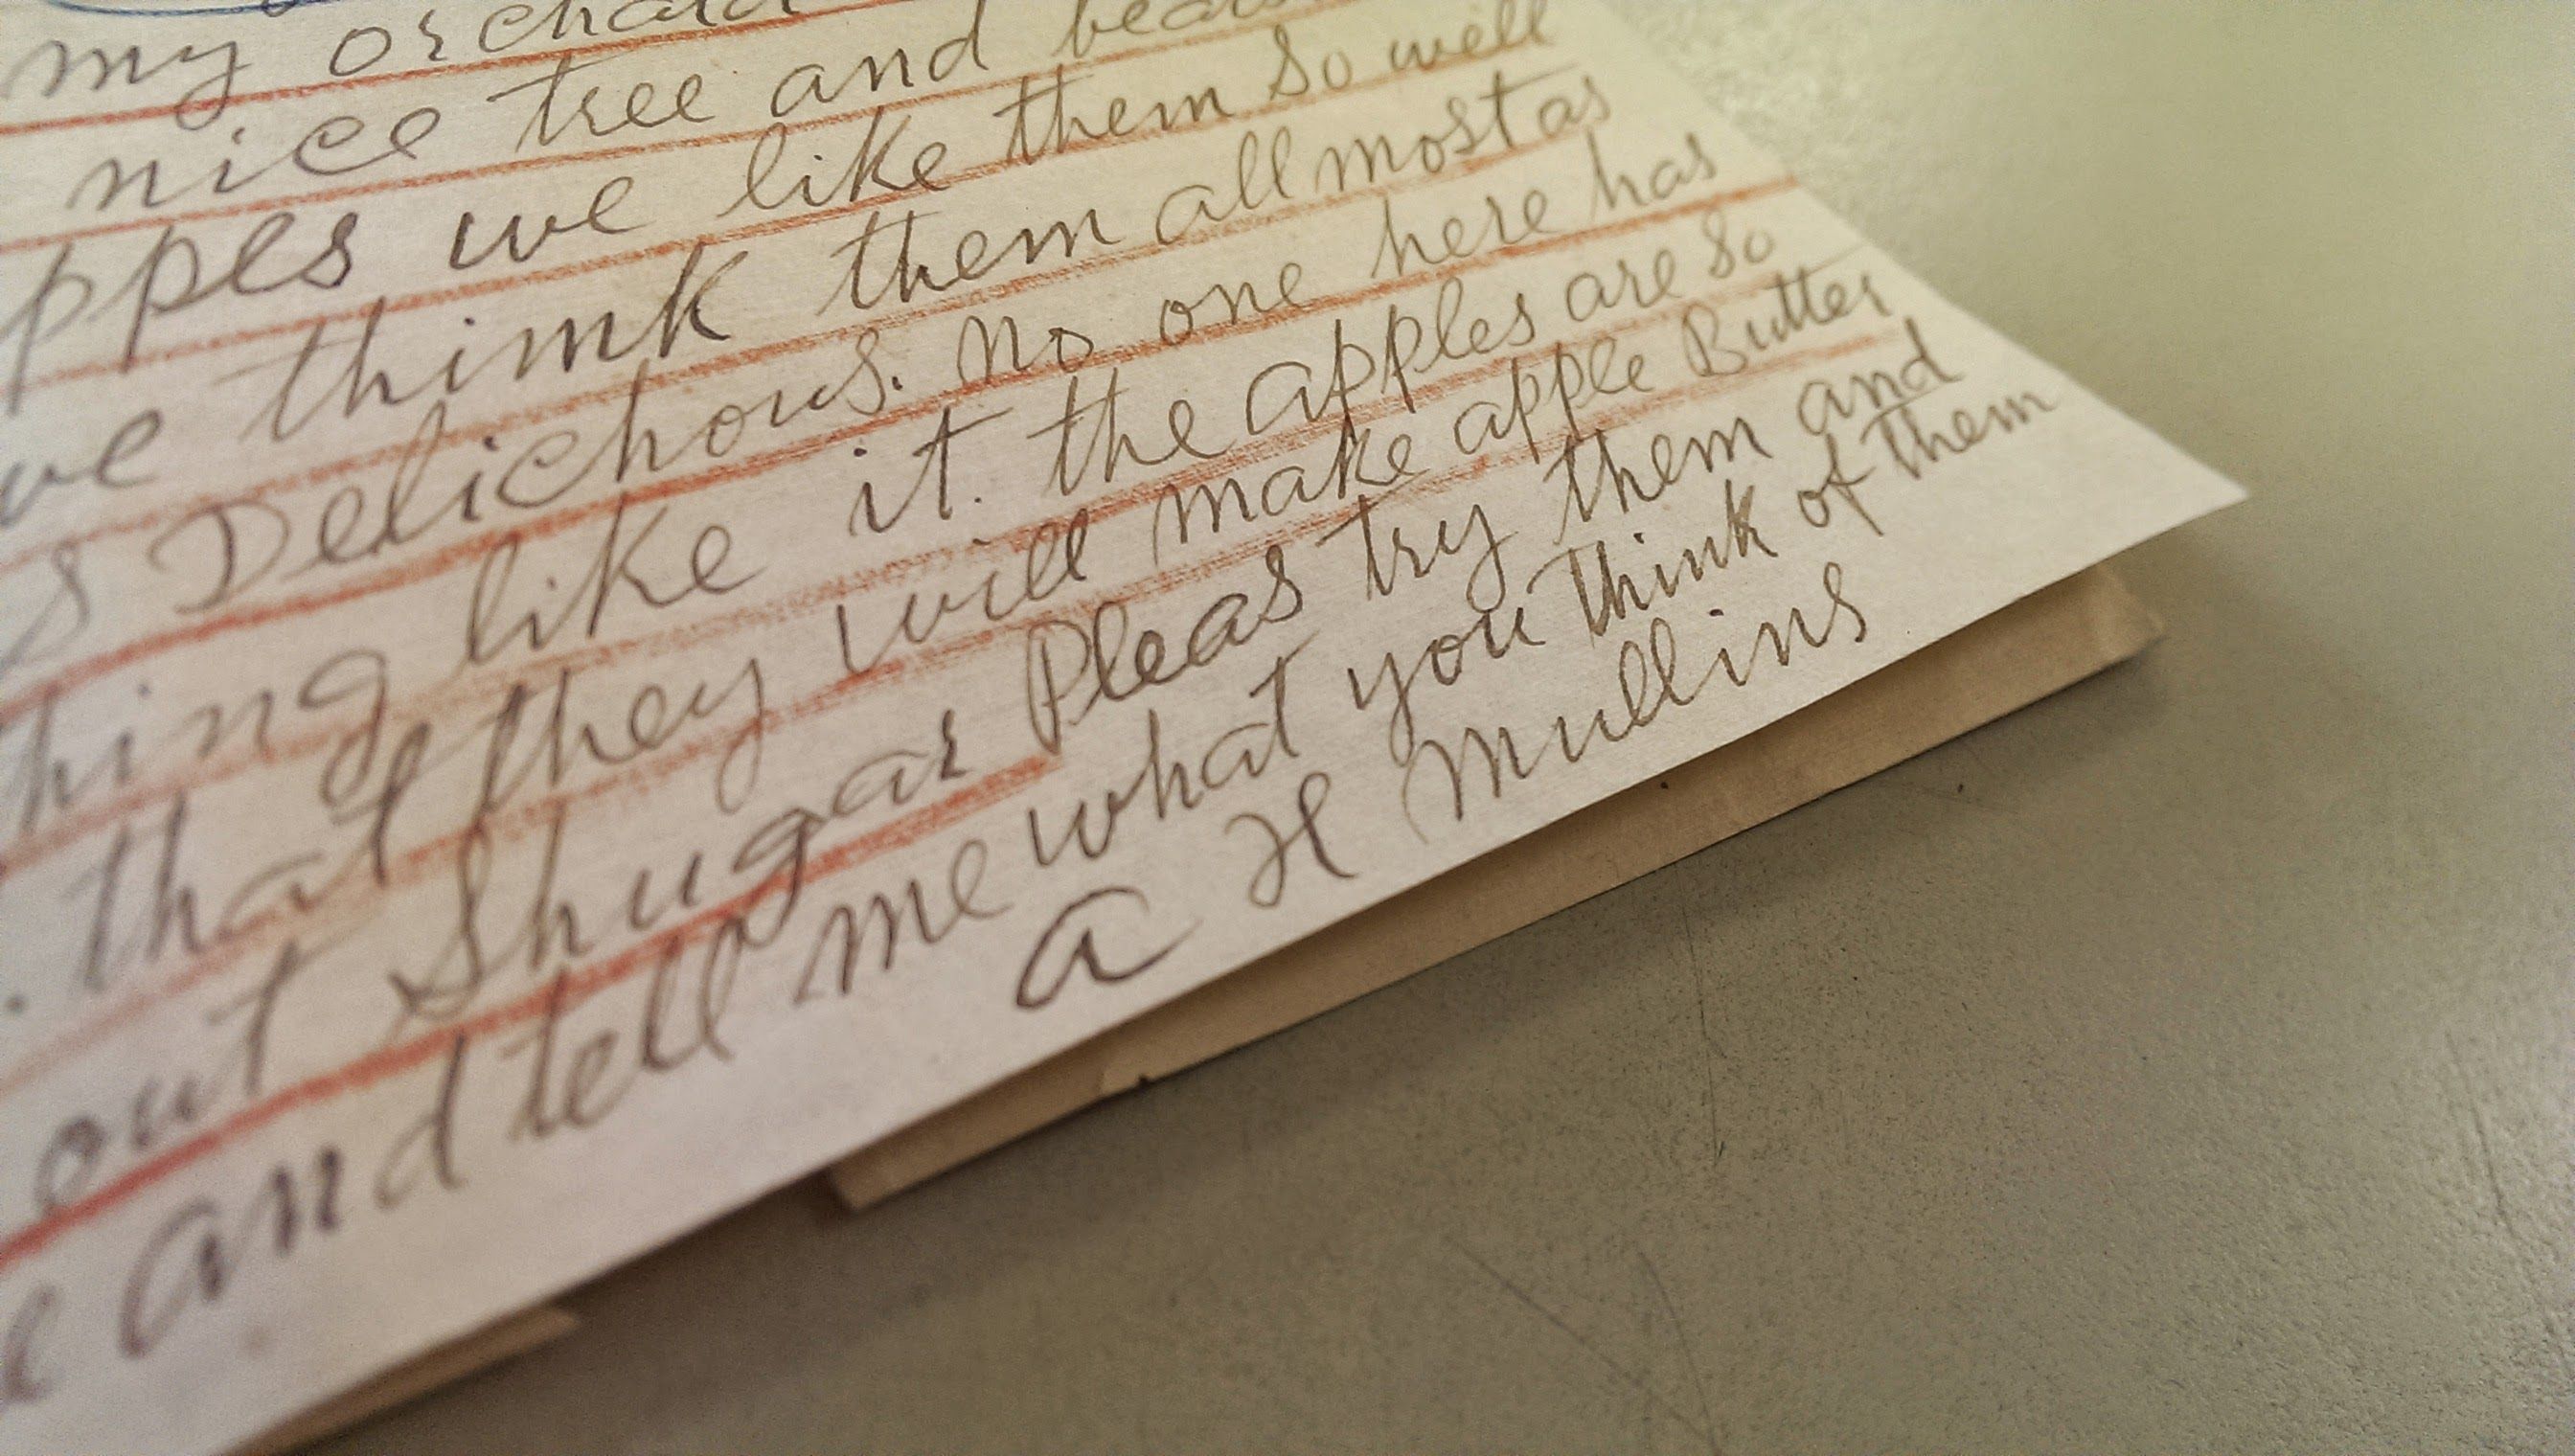 my orchard
nice tree and bears
ppes we like them so well
we thimk them allmost as
s Delichous. no one here has
hing like it. the apples are so
. that they will make apple Butter
out Shugar Pleas try them and
e and tell me what you think of them
a H Mullins